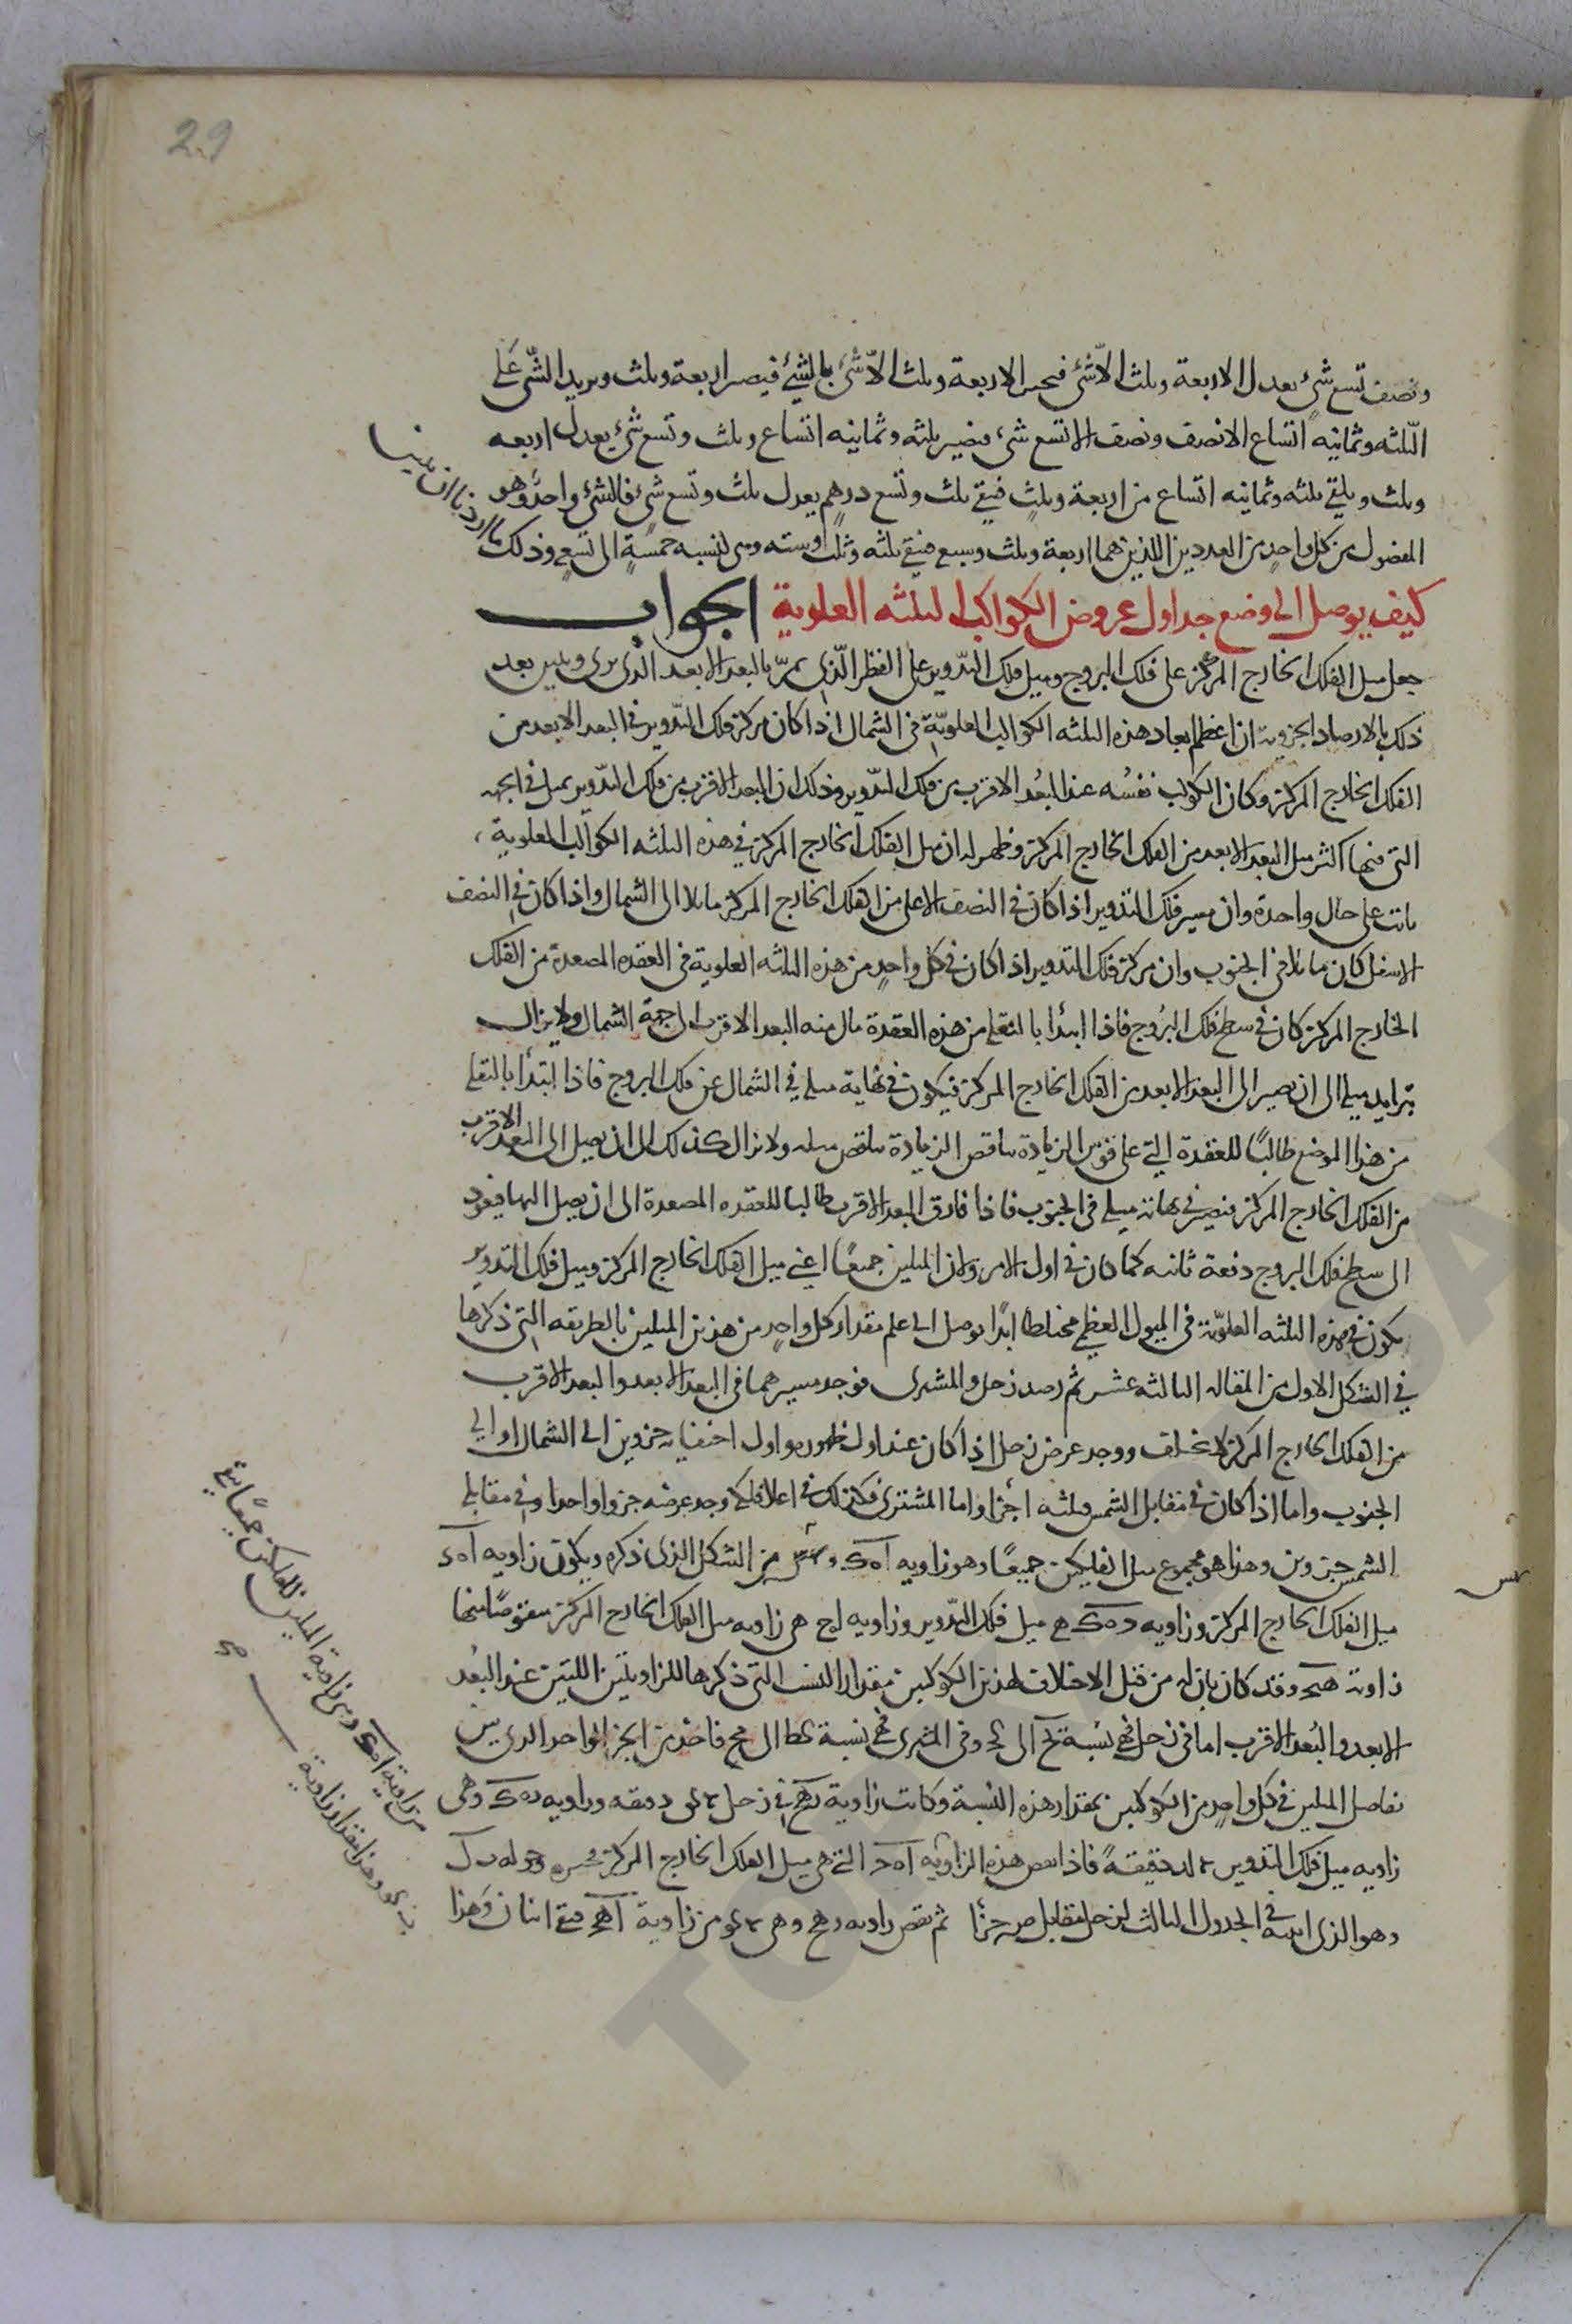 29
ونصف تسع شئ يعدل الاربعة وثلث الا شئ فنجبر الاربعة وثلث الا شئ بالشئ فيصير اربعة وثلث ويزيد الشئ على
الثلثه وثمانيه اتساع الا نصف ونصف الا تسع شئ فيصير ثلثه وثمانيه اتساع وثلث وتسع شئ يعدل اربعه
وثلث ويلقى ثلثه وثمانيه اتساع من اربعة وثلث فيبقى ثلث وتسع درهم يعدل ثلث وتسع شئ فالشئ واحد وهو
المفضول من كل واحد من العددين اللذين هما اربعة وثلث وسبع فيبقى ثلثه وثلث وسته وهى لنسبه خمسة الى تسع وذلك
ما اردنا ان نبين
كيف يوصل الى وضع جداول عروض الكواكب الثلثه العلوية الجواب
جعل ميل الفلك الخارج المركز على فلك البروج وميل فلك التدوير على القطر الذى يمر بالبعد الابعد الذى يرى وتبين بعد
ذلك بالارصاد الجزويه ان اعظم ابعاد هذه الثلثه الكواكب العلوية فى الشمال اذا كان مركز فلك التدوير فى البعد الابعد من
الفلك الخارج المركز وكان الكوكب نفسه عند البعد الاقرب من فلك التدوير وذلك ان البعد الاقرب من فلك التدوير يميل فى الجهه
التى فيها اكثر ميل البعد الابعد من الفلك الخارج المركز وظهر له ان ميل الفلك الخارج المركز فى هذه الثلثه الكواكب العلوية
ثابت على حال واحدة وان مسير فلك التدوير اذا كان فى النصف الاعلى من الفلك الخارج المركز مائلا الى الشمال واذا كان فى النصف
الاسفل كان مائلا فى الجنوب وان مركز فلك التدوير اذا كان فى كل واحد من هذه الثلثه العلوية فى العقده المصعدة من الفلك
الخارج المركز كان فى سطح فلك البروج فاذا ابتدا بالتقلى من هذه العقدة مال منه البعد الاقرب الى جهة الشمال ولا يزال
يتزايد ميله الى ان يصير الى البعد الابعد من الفلك الخارج المركز فيكون فى نهاية ميله فى الشمال عن فلك البروج فاذا ابتدأ بالتقلى
من هذا الموضع طالبا للعقدة التى على قوس الزيادة ناقص الزيادة تناقص ميله ولا يزال كذلك الى ان يصل الى البعد الاقرب
من الفلك الخارج المركز فيصير فى نهاية ميله فى الجنوب فاذا فارق البعد الاقرب طالبا للعقده المصعدة الى ان يصل اليها فيعود
الى سطح فلك البروج دفعة ثانيه كما كان فى اول الامر ولان الميلين جميعا اعنى ميل الفلك الخارج المركز وميل فلك التدوير
يكون فى هذه الثلثه العلوية فى الميول العظمى مختلطا ابدا توصل الى علم مقدار كل واحد من هذين الميلين بالطريقه التى ذكرها
فى الشكل الاول من المقاله الثالثه عشر ثم رصد زحل والمشترى فوجد مسيرهما فى البعد الابعد والبعد الاقرب
من الفلك الخارج المركز لا يختلف ووجد عرض زحل اذا كان عند اول ظهوره واول اختفايه جزوين الى الشمال او الى
الجنوب واما اذا كان فى مقابل الشمس فثلثه اجزا واما المشترى فكذلك فى اعلا فلكه وجد عرضه جزوا واحدا وفى مقابله
الشمس جزوين وهذا هو مجموع ميل الفلكين جميعا وهو زاويه اهك من الشكل الذى ذكره ويكون زاويه اهد
ميل الفلك الخارج المركز وزاويه دهك هى ميل فلك التدوير وزاويه اهج هى زاويه ميل الفلك الخارج المركز منقوصا منها
زاوية وقد كان بان له من قبل الاختلاف لهذين الكوكبين مقدار النسب التى ذكرها للزاويتين اللتين عند البعد
الابعد والبعد الاقرب اما فى زحل فهى نسبة يح الى كج وفى المشترى فهى نسبة كط الى مج فاخذ من الجزو الواحد الذى بين
تفاضل الميلين فى كل واحد من الكوكبين بمقدار هذه النسبة وكانت زاوية فى زحل دقيقه وزاويه دهك وهى
زاويه ميل فلك التدوير دقيقة فاذا نقص هذه الزاويه اهد التى هى ميل الفلك الخارج المركز
وهو الذى اثبته فى الجدول الثالث لزحل مقابل جزأ ثم نقص زاويه وهى من زاوية فبقى اثنان وهذا
من زاوية وهى زاوية الميلين للفلكين جميعا يبقى
وهذا مقدار زاوية